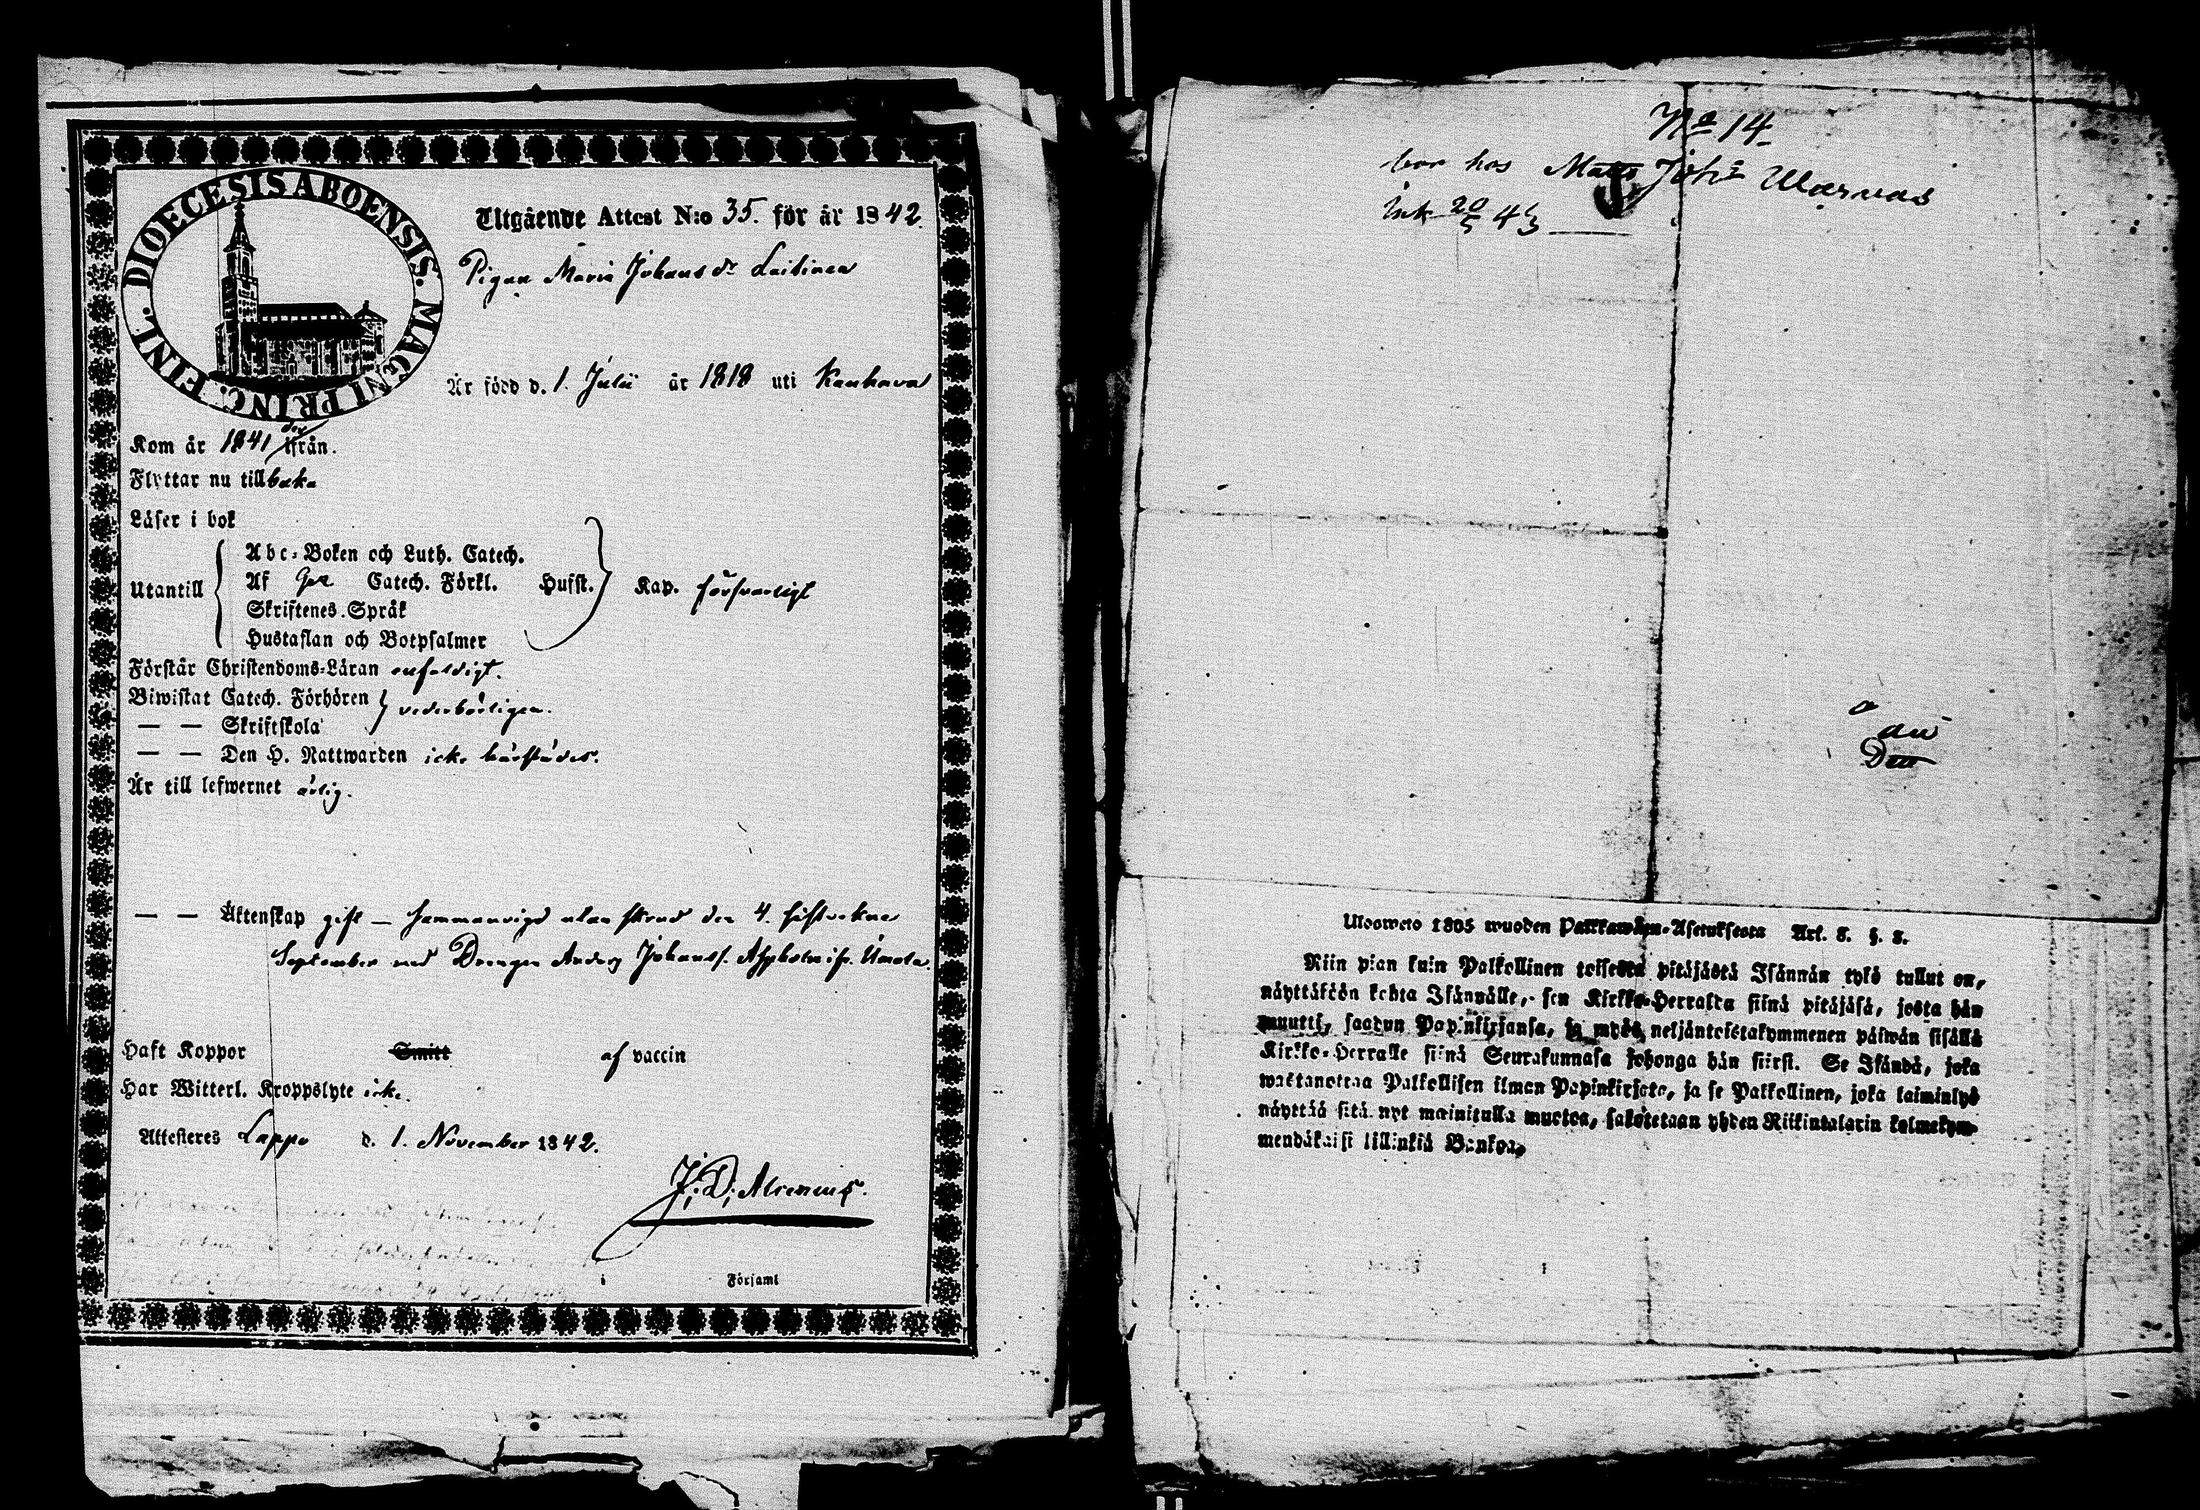 DIOECESIS ABOENSIS. MAGNI PRINC. FINL.
Utgående Attest N:o 35. för år 1842.
Pigan Maria Johansdr Laitinen
Är född d. 1. Julii år 1818 uti Kauhava
Kom år 1841 der ifrån.
Flyttar nu tillbaka
Läser i bok
Utantill
Abc-Boken och Luth. Catech.
Af Catech. Förkl. Hufst. Kap. försvarligt
Skriftenes Språk
Hustaflan och Botpsalmer
Förstår Christendoms-Läran enfaldigt.
Biwistat Catech. Förhören vederbörligen.
— — Skriftskola
— — Den H. Nattwarden icke härstädes.
Är till lefwernet ärlig.
— — Äktenskap gift — Sammanvigd utan skrud den 4. sistvekne
September med Drengen Anders Johanss.
Haft Koppor Smitt af vaccin
Har Witterl. Kroppslyte icke.
Attesteres Lappo d. 1. November 1842.
J. D. Alcenius.
i Församl
No 14
bor hos Matts Joh:s
Ink 20/5 43
au
Den
Ulosweto 1805 wuoden Palkkawäen-Asetuksesta Art. 3. §. 3.
Niin pian kuin Palkollinen toisesta pitäjästä Isännän tykö tullut on,
näyttäköön kohta Isännälle, sen Kirkko-Herralta siinä pitäjäsä, josta hän
muutti, saadun Papinkirjansa, ja myös neljäntoistakymmenen päiwän sisällä
Kirkko-Herralle siinä Seurakunnasa johonga hän siirsi. Se Isändä, joka
wastanottaa Palkollisen ilman Papinkirjata, ja se Palkollinen, joka laiminlyö
näyttää sitä nyt mainitulla muotoa, sakotetaan yhden Riikintalarin kolmekym-
mendäkaisi killinkiä Bankoa.